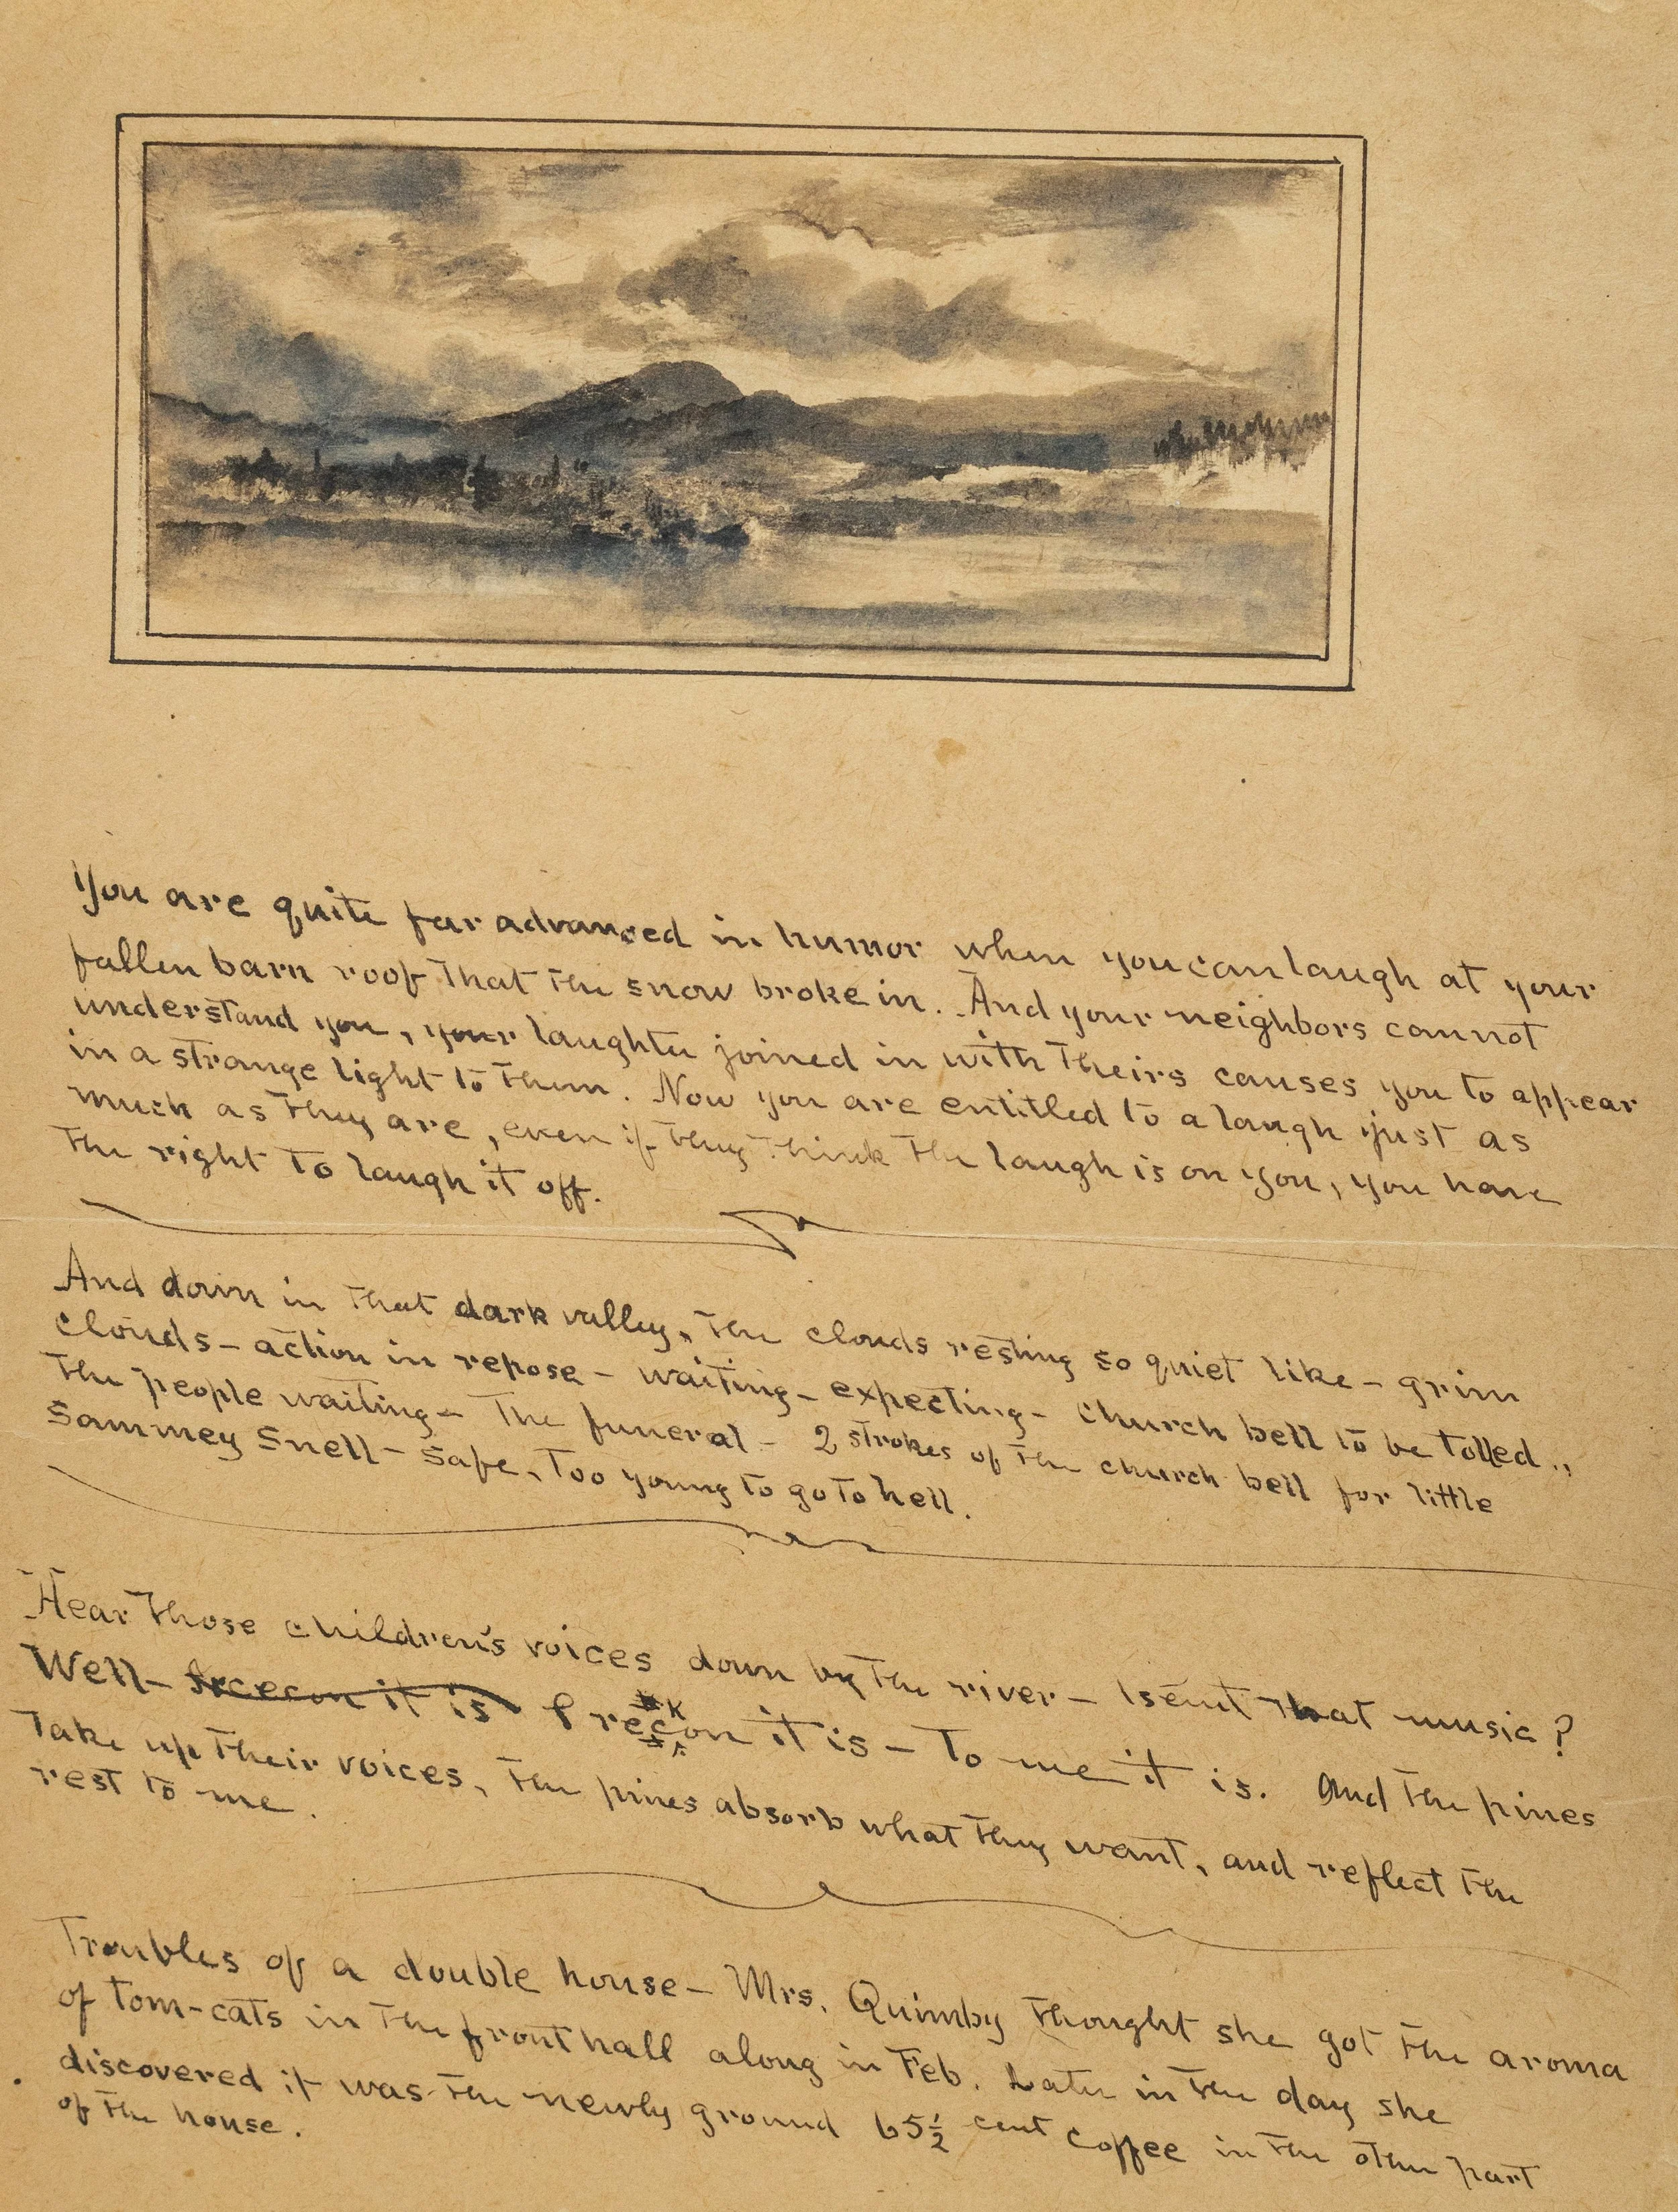 You are quite far advanced in humor when you can laugh at your
fallen barn roof that the snow broke in. And your neighbors cannot
understand you, your laughter joined in with theirs causes you to appear
in a strange light to them. Now you are entitled to a laugh just as
much as they are, even if they think the laugh is on you, you have
the right to laugh it off.
And down in that dark valley, the clouds resting so quiet like – grim
clouds – action in repose – waiting – expecting – church bell to be tolled.,
the people waiting – the funeral – 2 strokes of the church bell for little
Sammey Snell – safe, too young to go to hell.
Hear those children's voices down by the river – Isent that music?
Well – recon it is I reckon it is – to me it is. And the pines
take up their voices, the pines absorb what they want, and reflect the
rest to me.
Troubles of a double house – Mrs. Quimby thought she got the aroma
of tom-cats in the front hall along in Feb. Later in the day she
discovered it was the newly ground 65½ cent coffee in the other part
of the house.